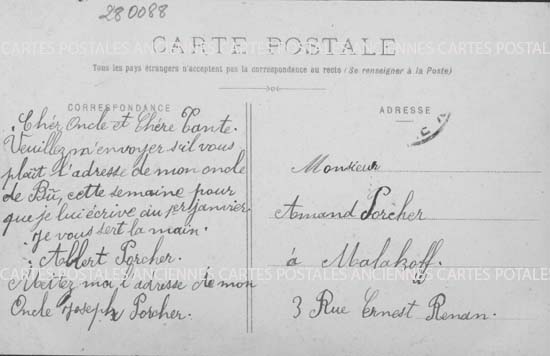 280088
CARTE POSTALE
Tous les pays étrangers n'acceptent pas la correspondance au recto (Se renseigner à la Poste)
CORRESPONDANCE
ADRESSE
Cher Oncle et Chère Tante.
Veuillez m'envoyer s'il vous
plait l'adresse de mon oncle
de Bû, cette semaine pour
que je lui écrive au 1er janvier.
je vous sert la main.
Albert Porcher.
Mettez moi l'adresse de mon
Oncle Joseph Porcher.
Monsieur
Amand Porcher
à Malakoff.
3 Rue Ernest Renan.
CARTES POSTALES ANCIENNES CARTES POSTALES ANCIENNES CARTES POSTALES
CARTES POSTALES ANCIENNES CARTES POSTALES ANCIENNES CARTES POTALES